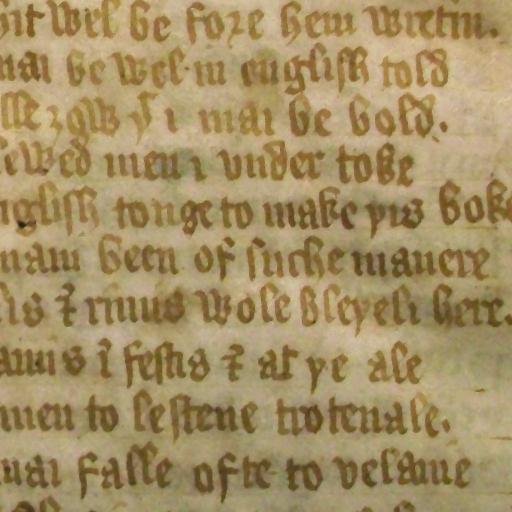 hit wel be fore hem wretin.
mai be wel in english told
elle ȝow þͭ i mai be bold.
lewed men i vnder toke
nglish tonge to make yis boke
mani been of suche manere
lis ⁊ rimis wole bleyeli here.
amis ī festis ⁊ at ye ale
men to lestene trotevale.
mai falle ofte to velanie